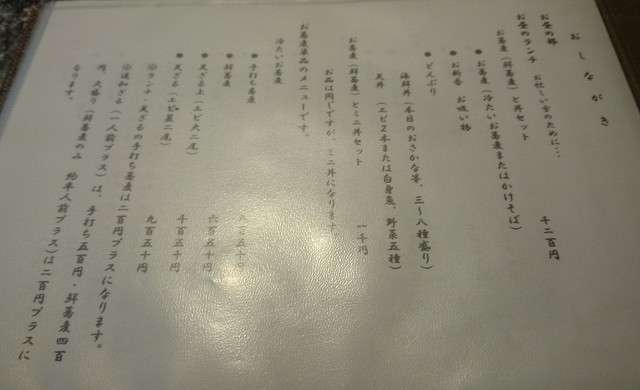 おしながき
お昼の部
お昼のランチ　お忙しい方のために…
お蕎麦（鮮蕎麦）と丼セット　千二百円
●お蕎麦（冷たいお蕎麦またはかけそば）
●お新香　お吸い物
●どんぶり
海鮮丼（本日のおさかな等、三〜八種盛り）
天丼（エビ２本または白身魚、野菜五種）
お蕎麦（鮮蕎麦）とミニ丼セット　一千円
お品は同じですが、ミニ丼になります。
お蕎麦単品のメニューです。
冷たいお蕎麦
●手打ち蕎麦　八百五十円
●鮮蕎麦　六百五十円
●天ざる上（エビ大二尾）　千百五十円
●天ざる（エビ並二尾）　九百五十円
ランチ・天ざるの手打ち蕎麦は二百円プラスになります。
追加ざる（一人前プラス）は、手打ち五百円・鮮蕎麦四百
円、大盛り（鮮蕎麦のみ　約半人前プラス）は二百円プラスに
なります。